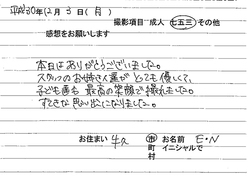 平成30年12月3日(月)
撮影項目 成人 七五三 その他
感想をお願いします
本日はありがとうございました。
スタッフのお姉さん達がとても優しくて、
子ども達も最高の笑顔で撮れました。
すてきな思い出になりました。
お住まい 牛久 市 町 村 お名前 イニシャルで E・N